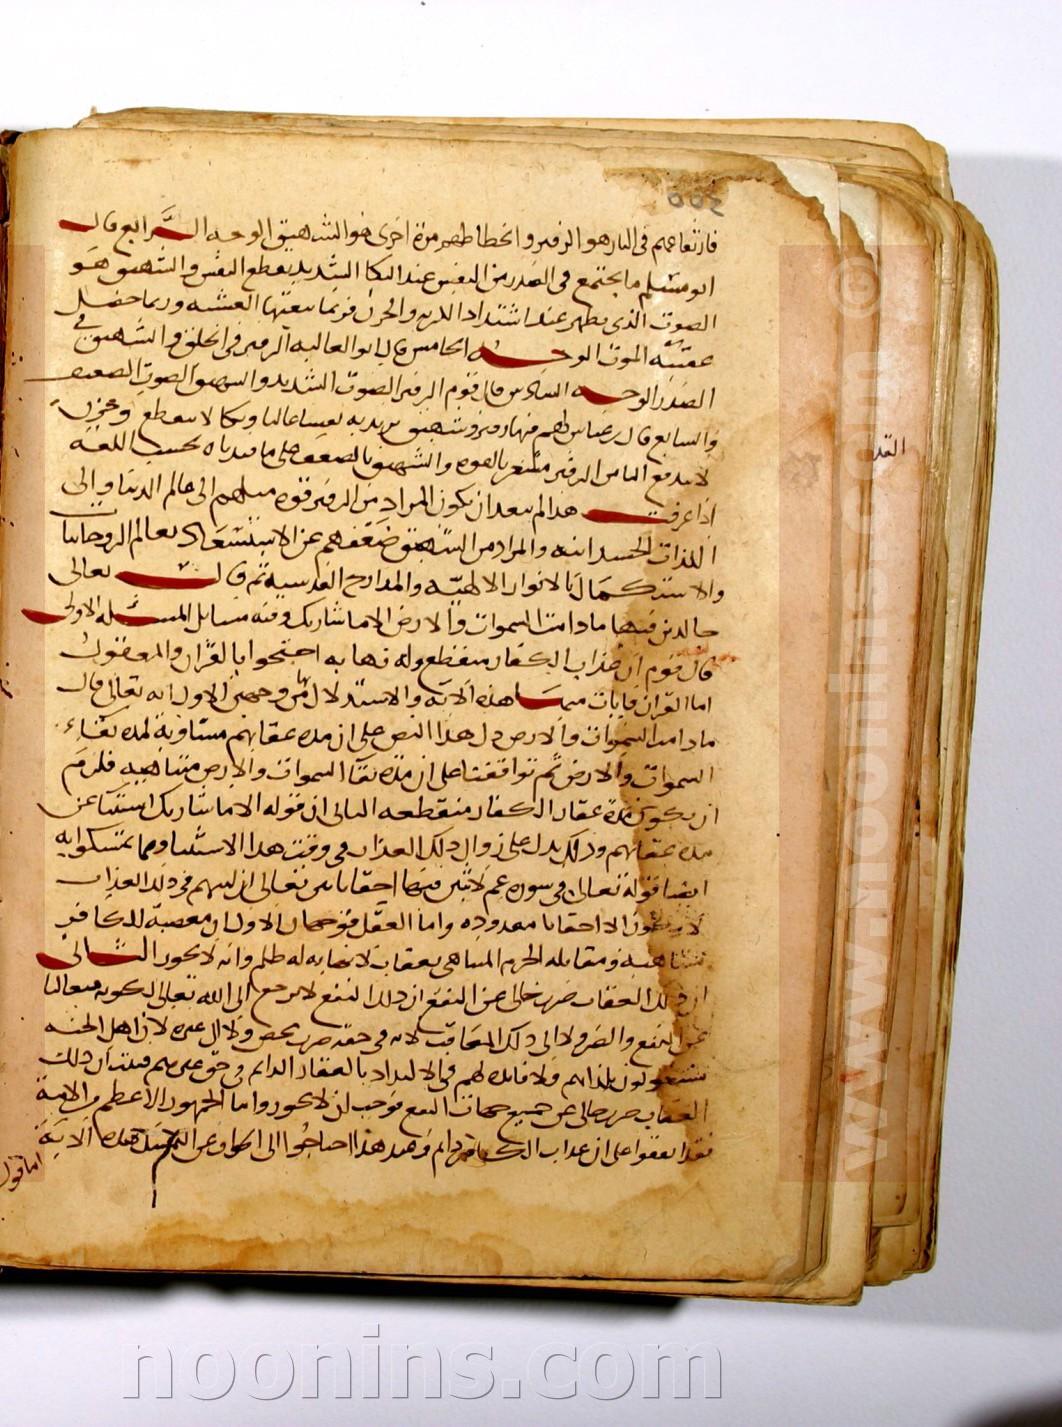 فارتفاعهم في النار هو الزفير وانحطاطهم مرة اخرى هو الشهيق الوجه الرابع قال
ابو مسلم ما يجتمع في الصدر من النفس عند البكا الشديد يقطع النفس والشهيق هو
الصوت الذي يظهر عند اشتداد الكرب والحزن فربما تبعتها الغشية وربما حصل
عقيبه الموت الوجه الخامس قال ابو العالية الزفير في الحلق والشهيق في
الصدر الوجه السادس قال قوم الزفير الصوت الشديد والشهيق الصوت الضعيف
والسابع قال ابن عباس لهم فيها زفير وشهيق يريد به نفسا عاليا وبكا لا ينقطع وحزن
لا يندفع الثامن الزفير مشعر بالقوة والشهيق بالضعف على ما قررناه بحسب اللغة
اذا عرفت هذا لم يبعد ان يكون المراد من الزفير قوة ميلهم الى عالم الدنيا والى
اللذات الجسدانية والمراد من الشهيق ضعفهم عن الاستسعاد بعالم الروحانيات
والاستكمال بالانوار الالهية والمدارج القدسية ثم قال تعالى
خالدين فيها ما دامت السموات والارض الا ما شا ربك وفيه مسايل المسئلة الاولى
قال قوم ان عذاب الكفار منقطع وله نهاية احتجوا بالقران والمعقول
اما القران فايات منها هذه الاية والاستدلال بها من وجهين الاول انه تعالى قال
ما دامت السموات والارض دل هذا النص على ان مدة عقابهم مساوية لمدة بقاء
السموات والارض ثم توافقنا على ان مدة بقا السموات والارض متناهية فلزم
ان يكون مدة عقاب الكفار منقطعة الثاني ان قوله الا ما شا ربك استثنا عن
مدة عقابهم وذلك يدل على زوال ذلك العذاب في وقت هذا الاستثنا ومما تمسكوا به
ايضا قوله تعالى في سورة عم لابثين فيها احقابا بين تعالى ان لبثهم في ذلك العذاب
لا يكون الا احقابا معدودة واما العقل فوجهان الاول ان معصية الكافر
متناهية ومقابلة الجرم المتناهي بعقاب لا نهاية له ظلم وانه لا يجوز الثاني
ان ذلك العقاب ضرر خالي عن النفع ان ذلك النفع لا يرجع الى الله تعالى لكونه متعاليا
عن النفع والضر ولا الى ذلك المعاقب لانه في حقه ضرر محض ولا الى غيره لان اهل الجنة
مشغولون بلذاتهم ولا فايدة لهم في الالتذاد بالعقاب الدايم في حق غيرهم فثبت ان ذلك
العقاب ضرر خالي عن جميع جهات النفع فوجب ان لا يجوز واما الجمهور الاعظم من الامة
فقد اتفقوا على ان عذاب الكافر دايم وعند هذا احتاجوا الى الجواب عن التمسك بهذه الاية
اما قول